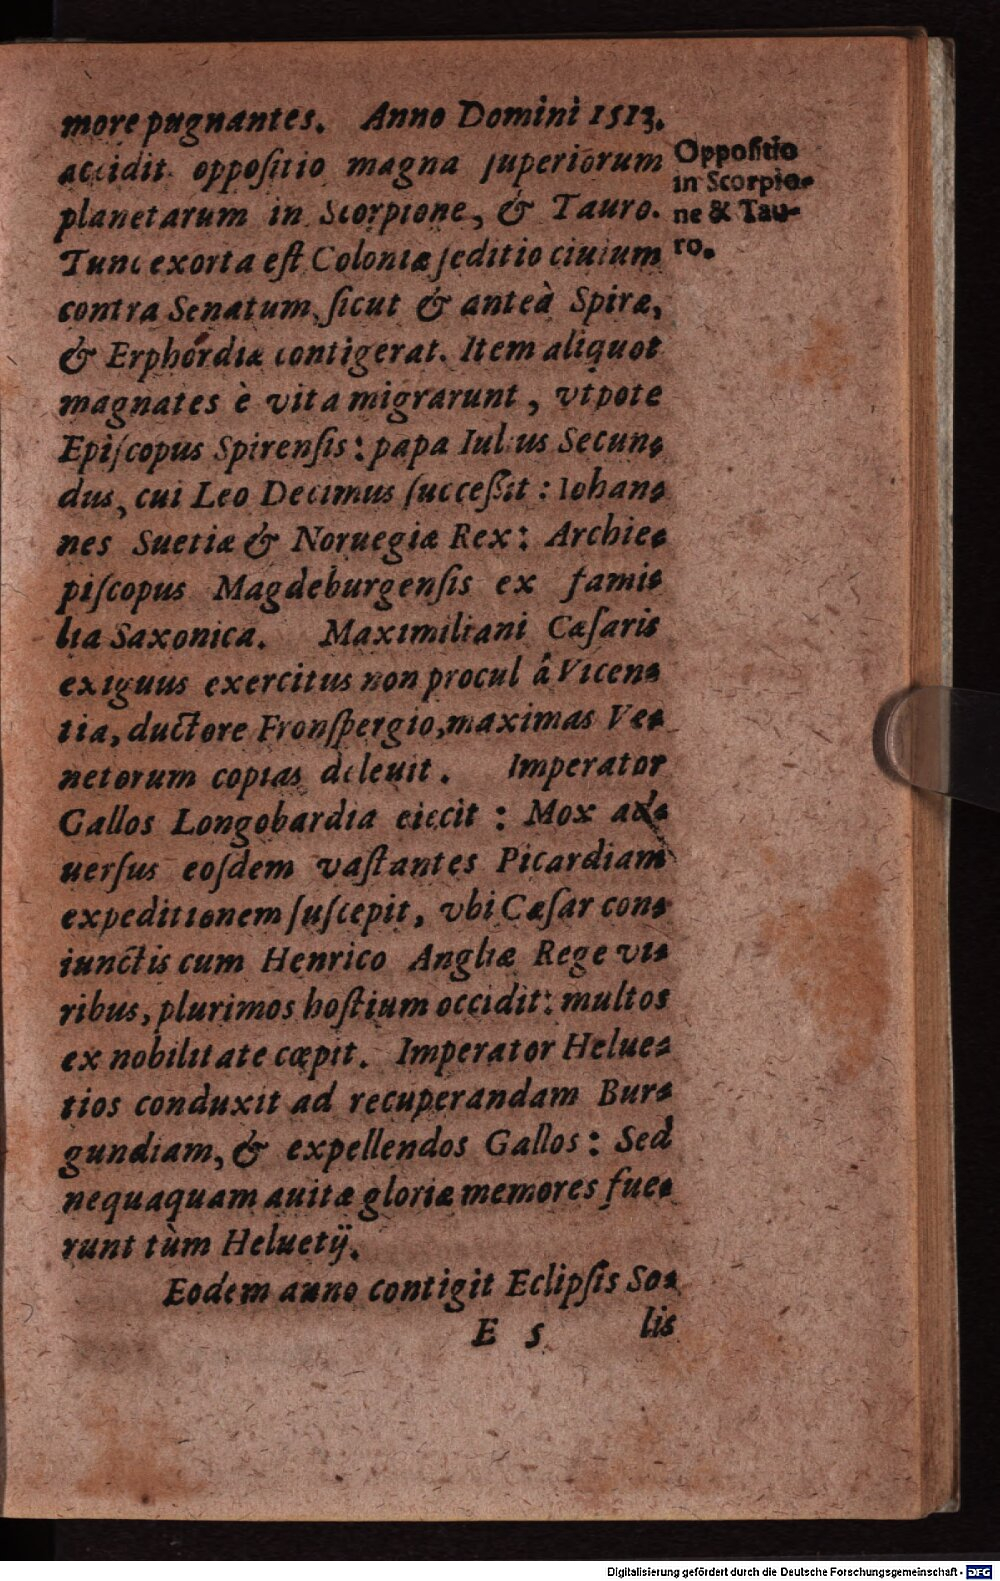 more pugnantes. Anno Domini 1513.
accidit oppoſitio magna ſuperiorum
planetarum in Scorpione, & Tauro.
Tunc exorta eſt Coloniæ ſeditio ciuium
contra Senatum, ſicut & anteà Spiræ,
& Erphordiæ contigerat. Item aliquot
magnates è vita migrarunt, vtpote
Epiſcopus Spirenſis: papa Iulius Secun-
dus, cui Leo Decimus ſucceſſit: Iohan-
nes Suetiæ & Noruegiæ Rex: Archie-
piſcopus Magdeburgenſis ex fami-
lia Saxonica. Maximiliani Cæſaris
exiguus exercitus non procul â Vicen-
tia, ductore Fronſpergio, maximas Ve-
netorum copias deleuit. Imperator
Gallos Longobardia eiecit: Mox ad-
uerſus eoſdem vaſtantes Picardiam
expeditionem ſuſcepit, vbi Cæſar con-
iunctis cum Henrico Angliæ Rege vi-
ribus, plurimos hoſtium occidit: multos
ex nobilitate cœpit. Imperator Helue-
tios conduxit ad recuperandam Bur-
gundiam, & expellendos Gallos: Sed
nequaquam auitæ gloriæ memores fue-
runt tùm Heluetij.
Eodem anno contigit Eclipſis So-
E 5 lis
Oppoſitio
in Scorpio-
ne & Tau-
ro.
Digitalisierung gefördert durch die Deutsche Forschungsgemeinschaft - DFG